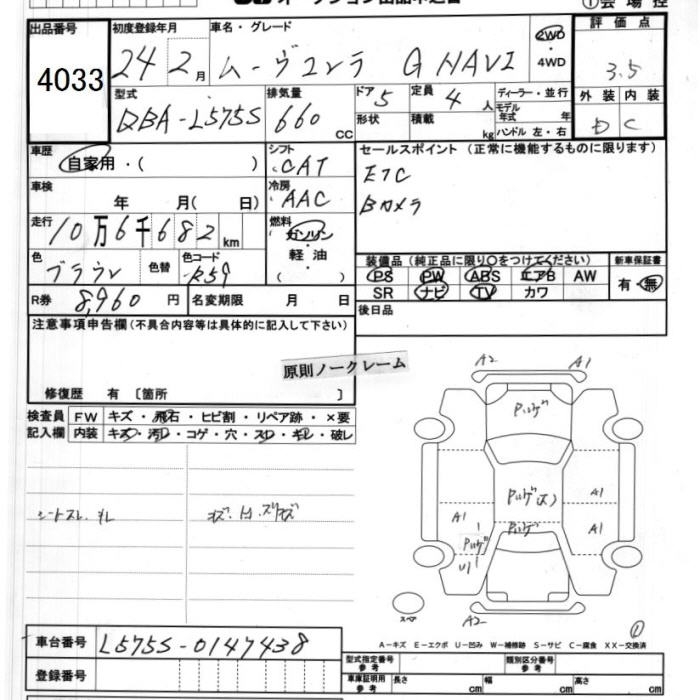 ①会場控
出品番号 初度登録年月 車名・グレード 評価点
4033 24 2月 ムーヴコンテ G NAVI 2WD ・ 4WD 3.5
型式 排気量 ドア 5 定員 4 人 ディーラー・並行
QBA-L575S 660 CC 形状 積載 kg モデル年式 年 ハンドル 左・右
外装 内装
D C
車歴 自家用・( ) シフト CAT セールスポイント (正常に機能するものに限ります)
車検 年 月( 日) 冷房 AAC ETC
Bカメラ
走行 10万6千682km 燃料 ガソリン・軽油 ( )
色 ブラウン 色替 色コード R59
装備品 (純正品に限り○をつけてください) 新車保証書
PS PW ABS エアB AW 有・無
SR ナビ TV カワ
R券 8,960円 名変期限 月 日 後日品
注意事項申告欄(不具合内容等は具体的に記入して下さい)
原則ノークレーム
修復歴 有 〔箇所 〕
検査員 FW キズ・飛石・ヒビ割・リペア跡・×要
記入欄 内装 キズ・汚れ・コゲ・穴・スレ・キレ・破レ
シートスレ、キレ
A2 A1
A1
A1 A1
U1
A2
スペア
①
A-キズ E-エクボ U-凹み W-補修跡 S-サビ C-腐食 XX-交換済
車台番号 L575S-0147438
型式指定番号 参考 類別区分番号 参考
登録番号 車庫証明用 参考 長さ cm 幅 cm 高さ cm